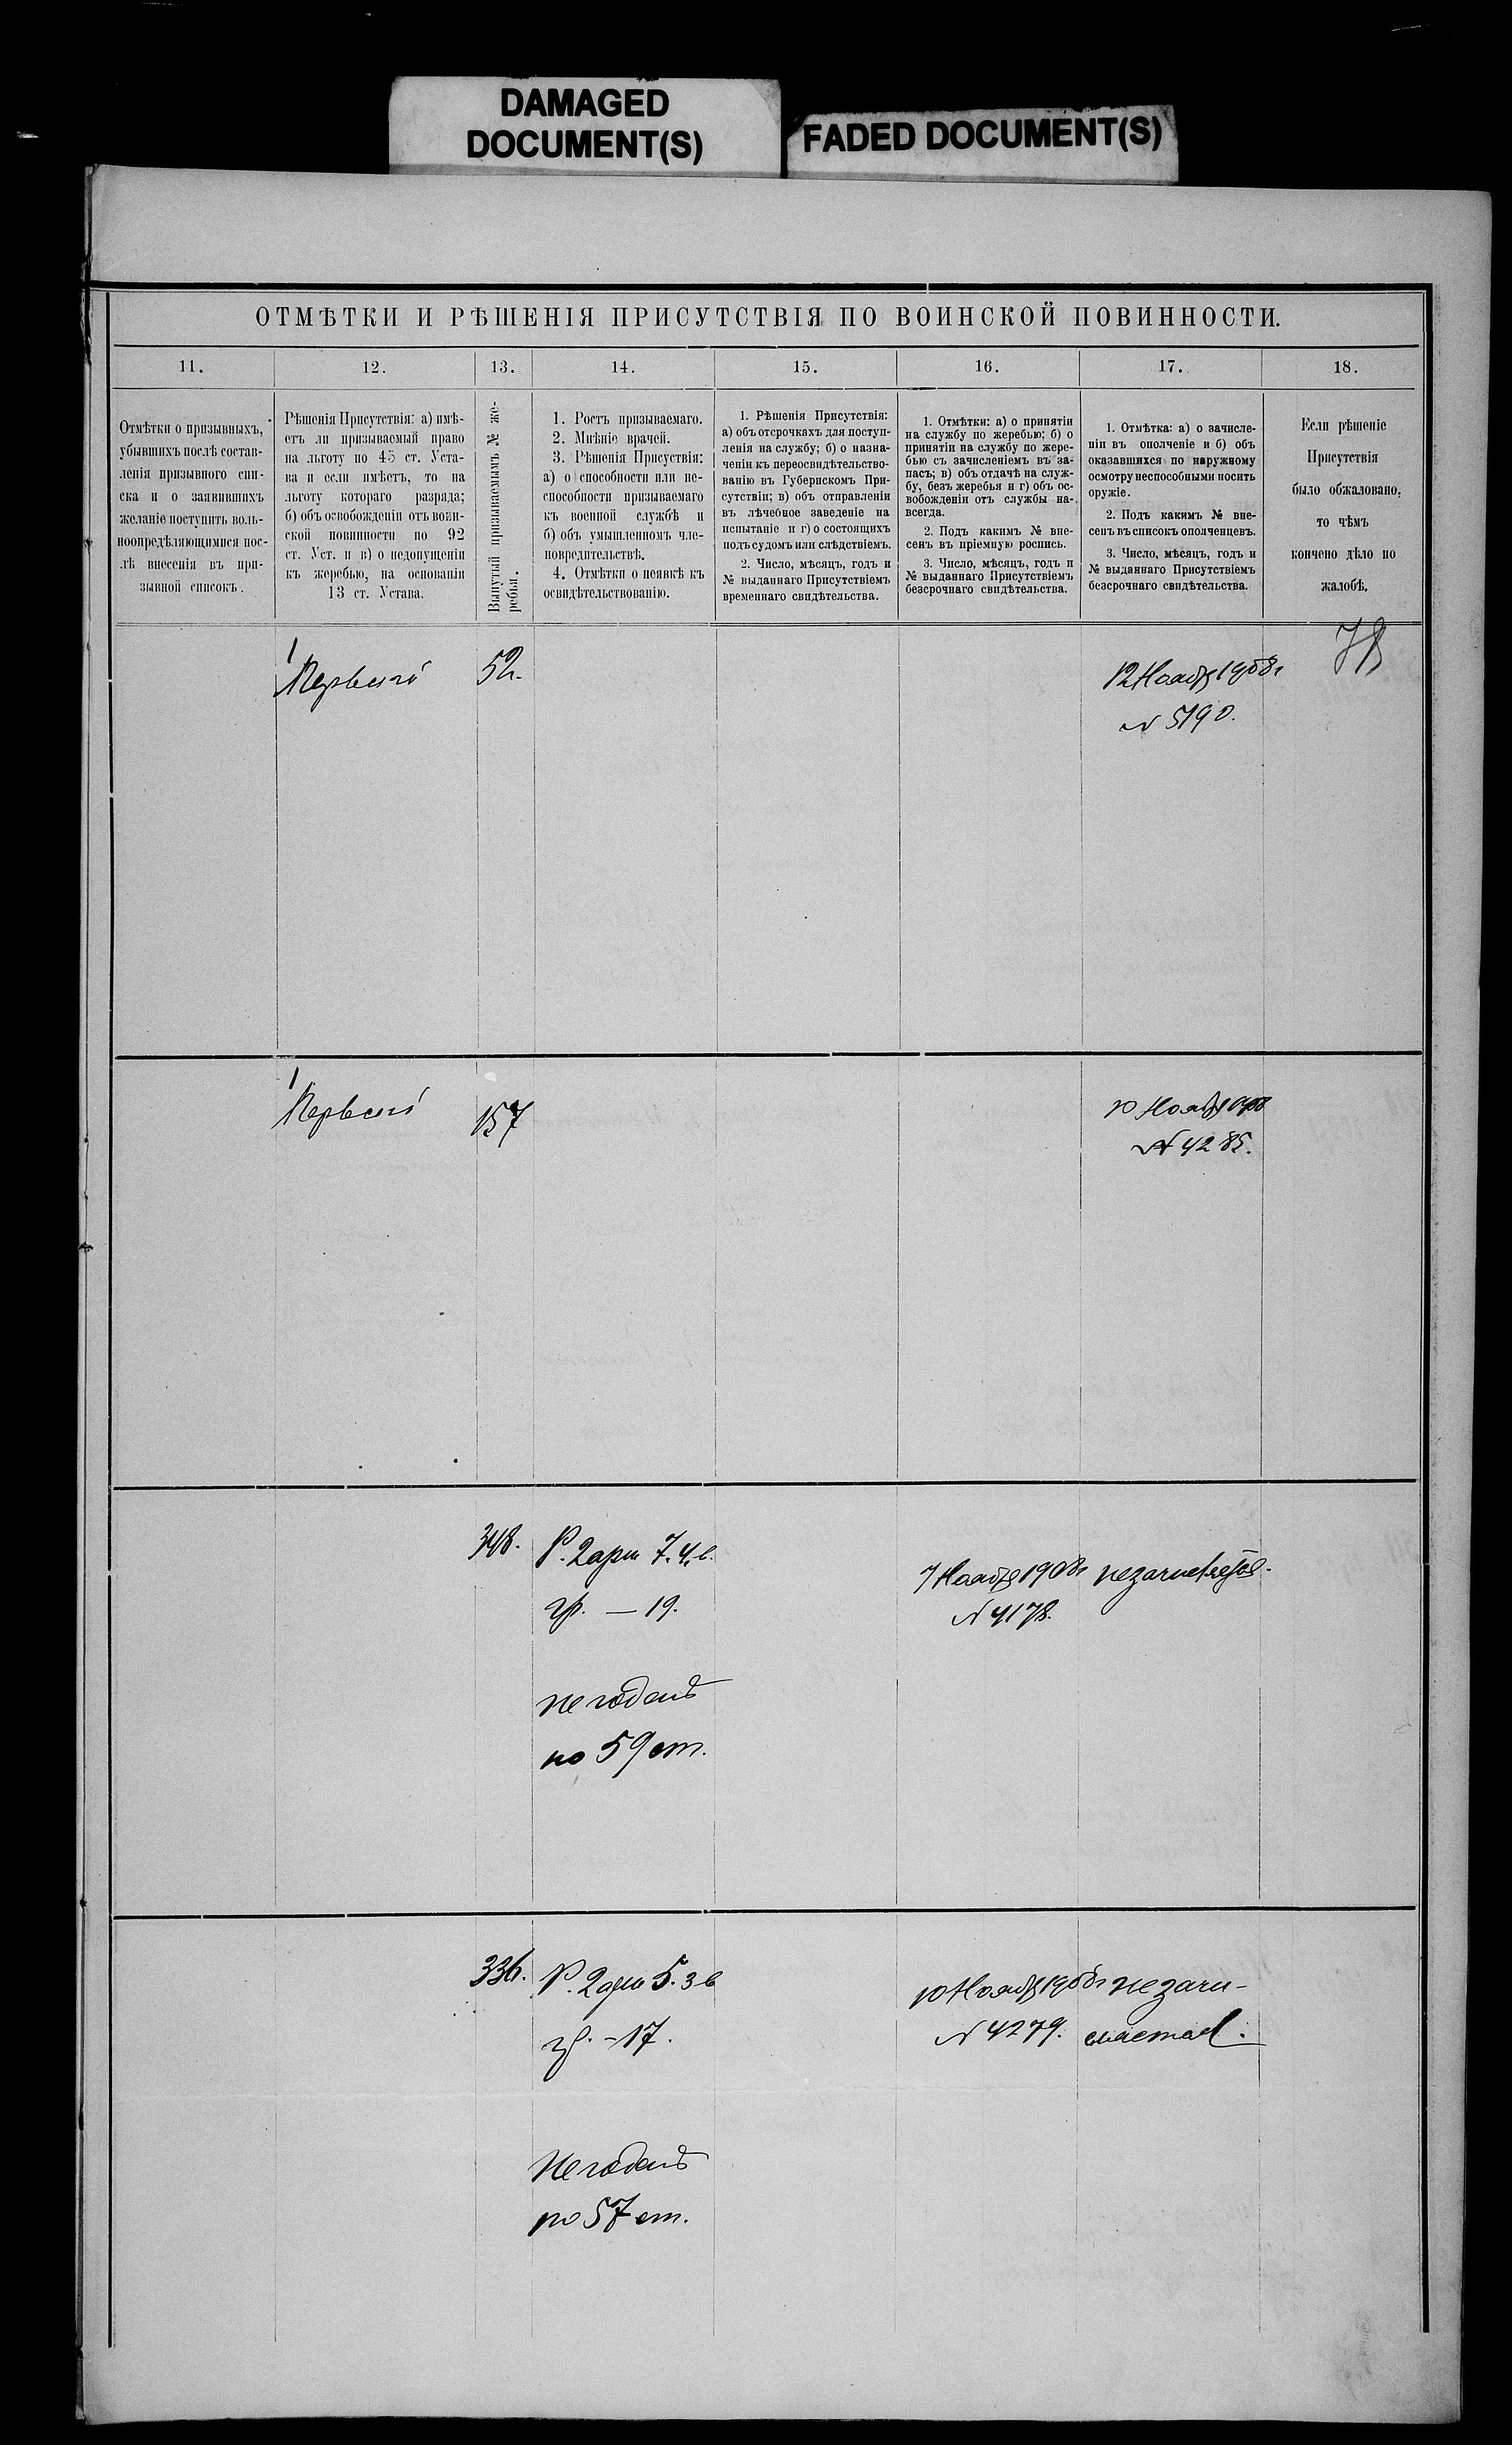 DAMAGED
DOCUMENT(S)
FADED DOCUMENT(S)
ОТМѢТКИ И РѢШЕНІЯ ПРИСУТСТВІЯ ПО ВОИНСКОЙ ПОВИННОСТИ.
11.
12.
13.
14.
15.
16.
17.
18.
Отмѣтки о призывныхъ,
убывшихъ послѣ состав-
ленія призывного спи-
ска и о заявившихъ
желаніе поступить воль-
ноопредѣляющимися пос-
лѣ внесенія въ при-
зывной списокъ.
Рѣшенія Присутствія: а) имѣ-
етъ ли призываемый право
на льготу по 45 ст. Уста-
ва и если имѣетъ, то на
льготу котораго разряда;
б) объ освобожденіи отъ воин-
ской повинности по 92
ст. Уст. и в) о недопущеніи
къ жеребью, на основаніи
13 ст. Устава.
Вынутый призываемымъ № же-
ребья.
1. Ростъ призываемаго.
2. Мнѣніе врачей.
3. Рѣшенія Присуствія:
а) о способности или не-
способности призываемаго
къ военной службѣ и
б) объ умышленномъ чле-
новредительствѣ.
4. Отмѣтки о неявкѣ къ
освидѣтельствованію.
1. Рѣшенія Присутствія:
а) объ отсрочкахъ для поступ-
ленія на службу; б) о назна-
ченіи къ переосвидѣтельство-
ванію въ Губернскомъ При-
сутствіи; в) объ отправленіи
въ лѣчебное заведеніе на
испытаніе и г) о состоящихъ
подъ судомъ или слѣдствіемъ.
2. Число, мѣсяцъ, годъ и
№ выданнаго Присутствіемъ
временнаго свидѣтельства.
1. Отмѣтки: а) о принятіи
на службу по жеребью; б) о
принятіи на службу по жере-
бью съ зачисленіемъ въ за-
пасъ; в) объ отдачѣ на служ-
бу, безъ жеребья и г) объ ос-
вобожденіи отъ службы на-
всегда.
2. Подъ какимъ № вне-
сенъ въ пріемную роспись.
3. Число, мѣсяцъ, годъ и
№ выданнаго Присутствіемъ
безсрочнаго свидѣтельства.
1. Отмѣтка: а) о зачисле-
ніи въ ополченіе и б) объ
оказавшихся по наружному
осмотру неспособными носить
оружіе.
2. Подъ какимъ № вне-
сенъ въ списокъ ополченцевъ.
3. Число, мѣсяцъ, годъ и
№ выданнаго Присутствіемъ
безсрочнаго свидѣтельства.
Если рѣшеніе
Присутствія
было обжаловано,
то чѣмъ
кончено дѣло по
жалобѣ.
1
Первый
52.
12 Ноября 1908 г
№ 5190.
1
Первый
157
10 Ноября 1908
№ 4285.
348.
Р. 2 арш 7. 4. в.
гр. — 19.
негоденъ
по 59 ст.
7 Ноября 1908 г
№ 4178.
незачисляется.
336.
Р. 2 арш 5. 3 в
гр. - 17.
Негоденъ
по 57 ст.
10 Ноября 1908 г
№ 4279.
незачи-
сляется.